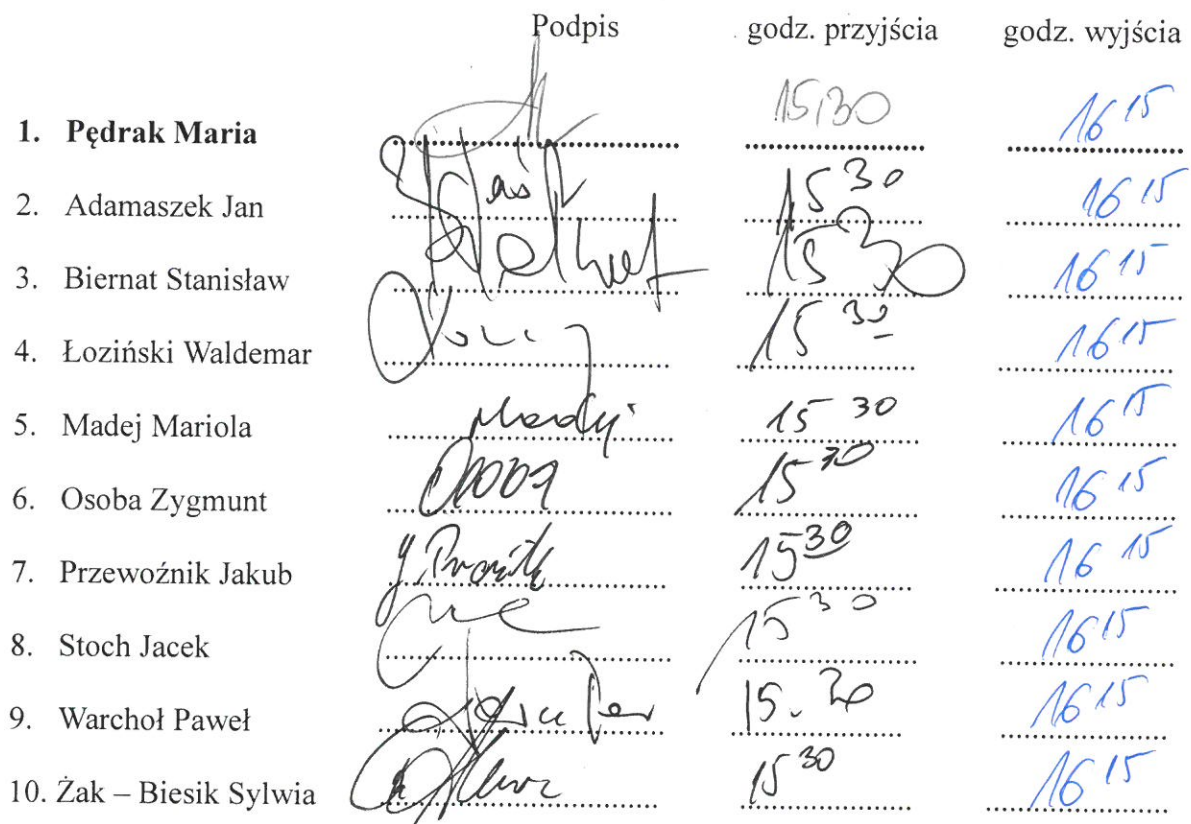 Podpis godz. przyjścia godz. wyjścia
1. Pędrak Maria 1530 16 15
2. Adamaszek Jan 15 30 16 15
3. Biernat Stanisław 15 30 16 15
4. Łoziński Waldemar 15 30 16 15
5. Madej Mariola Madej 15 30 16 15
6. Osoba Zygmunt Osoba 15 30 16 15
7. Przewoźnik Jakub 15 30 16 15
8. Stoch Jacek 15 30 16 15
9. Warchoł Paweł 15. 16 15
10. Żak – Biesik Sylwia 15 30 16 15